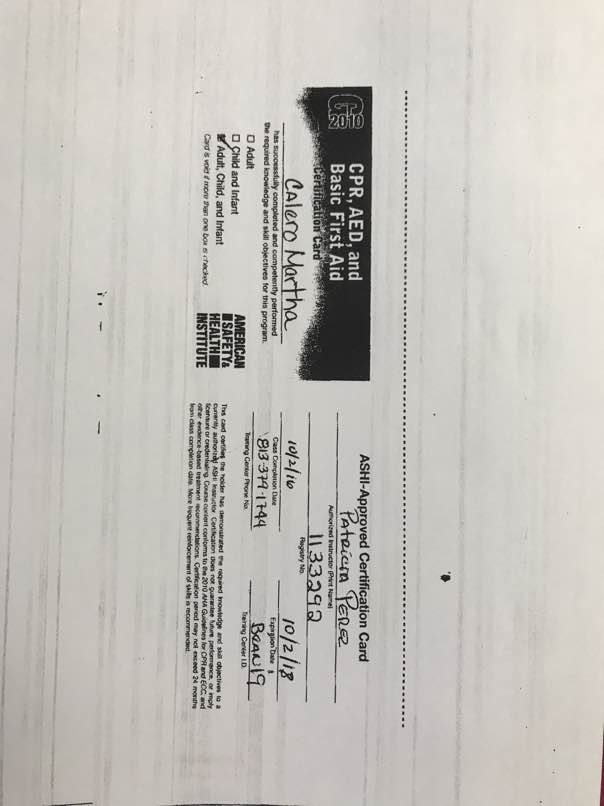 G
2010
CPR, AED, and
Basic First Aid
Certification Card
CAlero Martha
has successfully completed and competently performed
the required knowledge and skill objectives for this program.
☐ Adult
☐ Child and Infant
☑ Adult, Child, and Infant
Card is void if more than one box is checked.
AMERICAN
SAFETY &
HEALTH
INSTITUTE
ASHI-Approved Certification Card
Patricia Perez
Authorized Instructor (Print Name)
1133292
Registry No.
10/2/16 10/2/18
Class Completion Date Expiration Date
813-379-1744
Training Center Phone No. Training Center I.D.
This card certifies the holder has demonstrated the required knowledge and skill objectives to a
currently authorized ASHI Instructor. Certification does not guarantee future performance, or imply
licensure or credentialing. Course content conforms to the 2010 AHA Guidelines for CPR and ECC, and
other evidence-based treatment recommendations. Certification period may not exceed 24 months
from class completion date. More frequent reinforcement of skills is recommended.